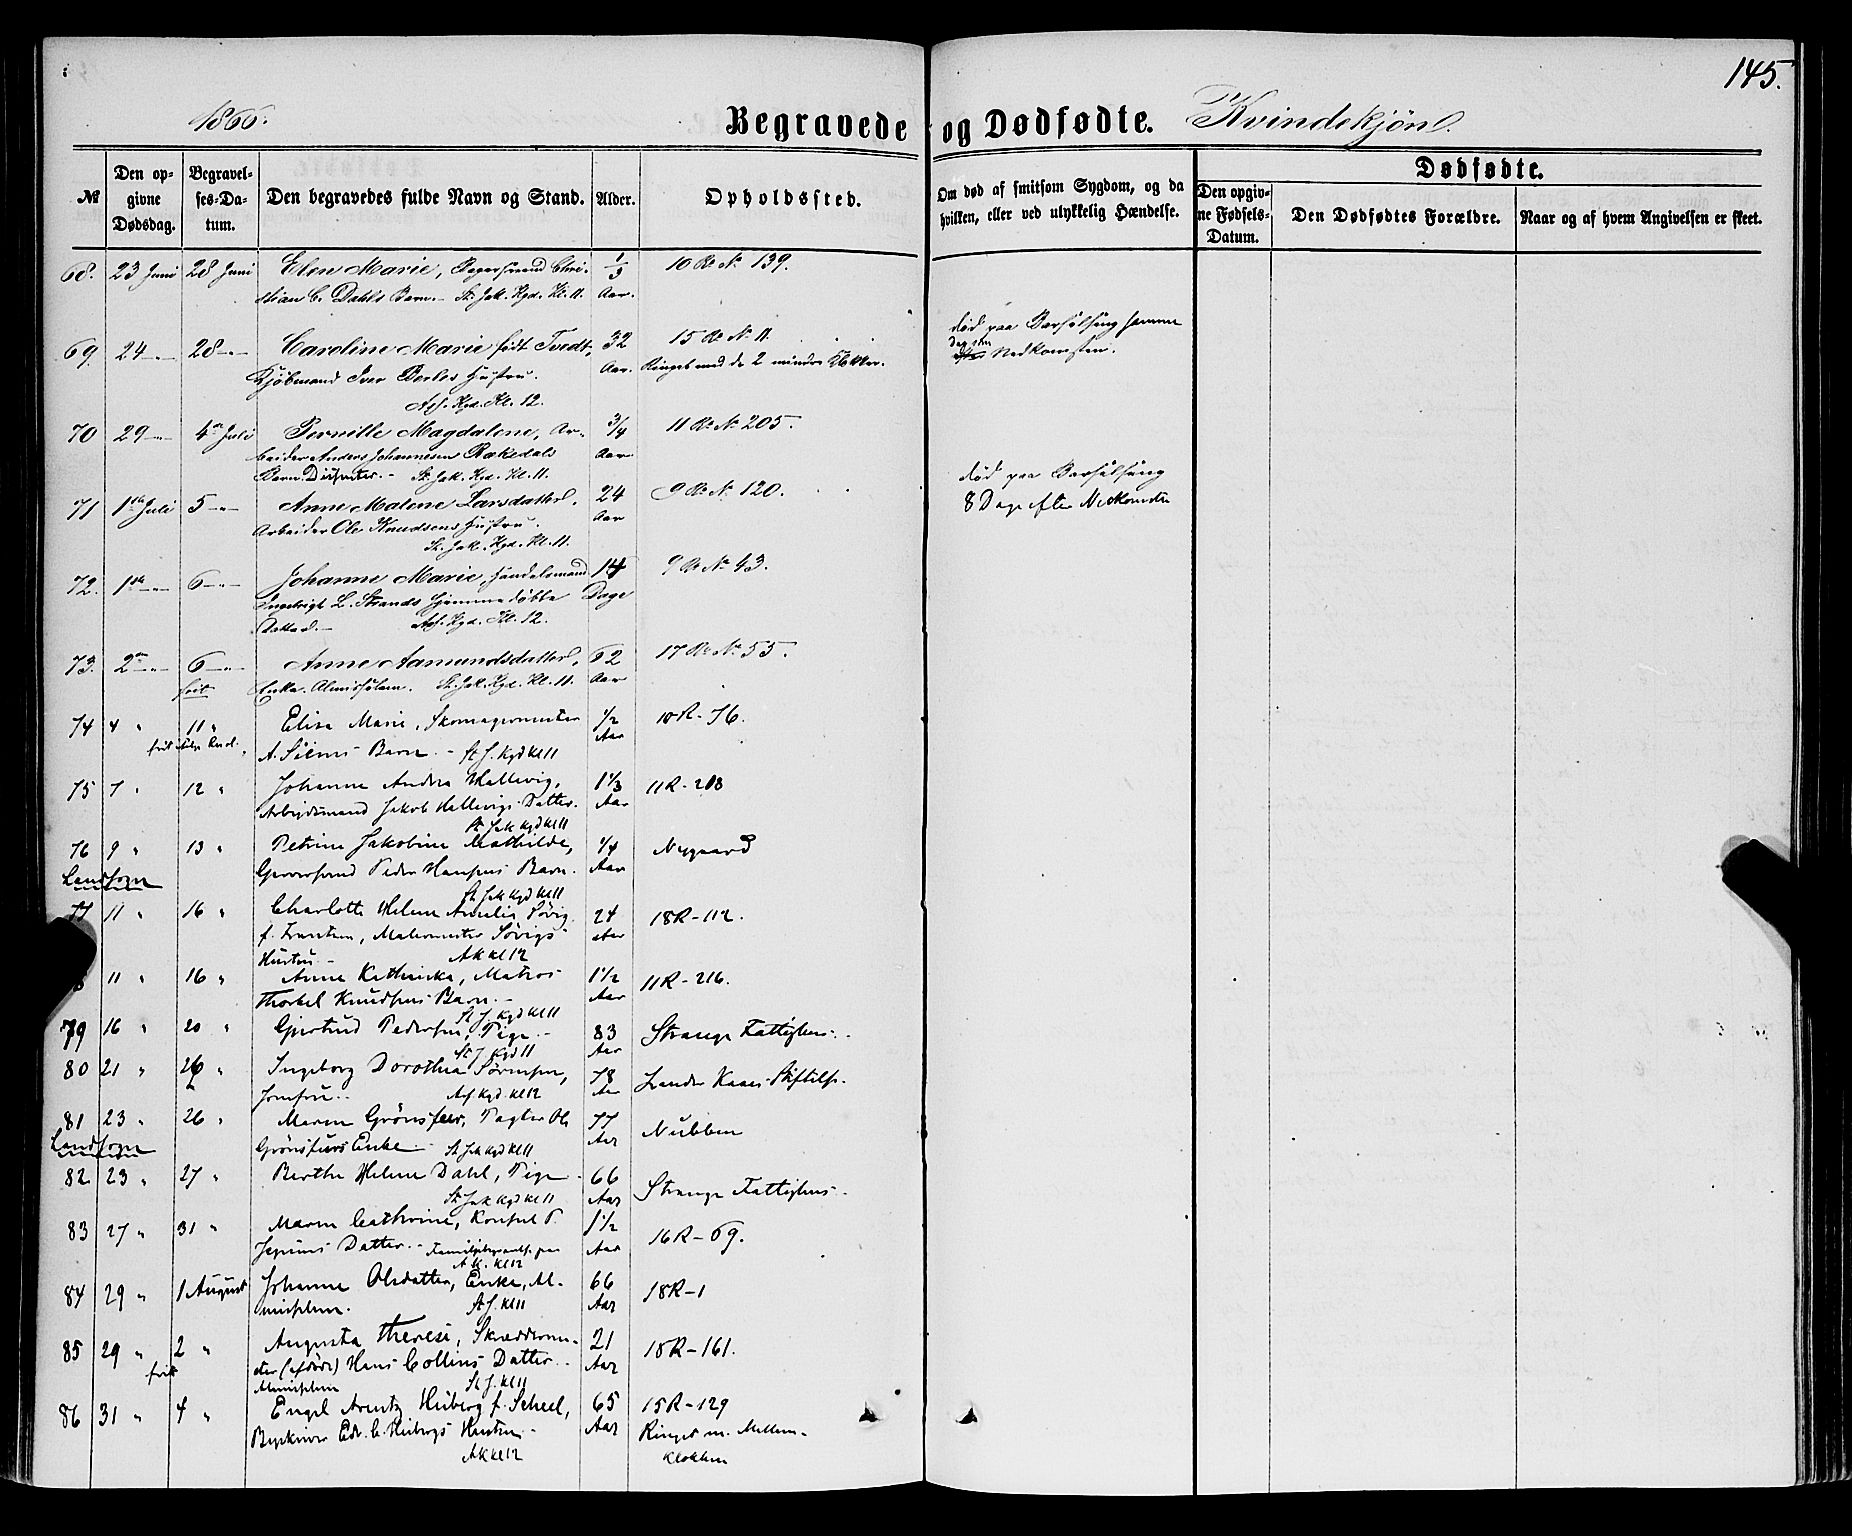 145.
1866.
Begravede og Dødfødte. Kvindekjøn.
№
Den opgivne Dødsdag.
Begravelses-Datum.
Den begravedes fulde Navn og Stand.
Alder.
Opholdssted.
Om død af smitsom Sygdom, og da hvilken, eller ved ulykkelig Hændelse.
Dødfødte.
Den opgivne Fødsels-Datum.
Den Dødfødtes Forældre.
Naar og af hvem Angivelsen er skeet.
68. 23 Juni 28 Juni Elen Marie, Bagersvend Chri- 1/3 10 R. No 139.
stian C. Dahls Barn. – St. Jak. Kgd. Kl. 11. Aar.
69. 24 – " – 28 – " – Caroline Marie født Tvedt, 32 15 R. No 11. død paa Barselseng samme
Kjøbmand Iver Hustru. Aar. Ringet med de 2 mindre Klokker. Dag som Nedkomsten.
Asf. Kgd. Kl. 12.
70 29 – " – 4de Juli Pernille Magdalene, Ar- 3/4 11 R. No 205.
beider Anders Johannesen Rækedals Aar
Barn. Dissenter. – St. Jak. Kgd. Kl. 11.
71 1ste Juli 5 – " – Anne Malene Larsdatter, 24 9 R. No 120. død paa Barselseng
Arbeider Ole Knudsens Hustru. Aar 8 Dage efter Nedkomsten
St. Jak. Kgd. Kl. 11.
72. 1ste – " – 6 – " – Johanne Marie, Handelsmand 14 9 R. No 43.
Ingebrigt L. Strands hjemmedøbte Dage
Datter. – Asf. Kgd. Kl. 12.
73. 2den – " – 6 – " – Anne Aamundsdatter, 62 17 R. No 55.
frit Enke. Almisselem. St. Jak. Kgd. Kl. 11. Aar
74 4 " 11 " Elisa Marie, Skomagermester 1/2 10 R - 76.
frit A. Barn. – St J. Kgd Kl 11 Aar
75 7 " 12 " Johanne Andrea Hallevig, 1 1/3 11 R - 208
Arbeidsmand Jakob Hallevigs Datter. Aar
St Jak Kgd Kl 11
76 9 " 13 " Petrine Jakobine Mathilde, 1/4 Nygaard
Landsogn Peder Hansens Barn. Aar
St Jak Kgd Kl 11
77 11 " 16 " Charlotte Helene Amelia Søvig 24 18 R - 112.
f. Malermester Søvigs Aar
Hustru. – A K Kl 12
11 " 16 " Anne Kathinka, Matros 1 1/2 11 R - 216.
Thorkel Knudsens Barn. – Aar
St J. Kgd Kl 11
79 16 " 20 " Gjertrud Pedersen, Pige. – 83 Strange Fattighus.
St J Kgd 11 Aar
80 21 " 26 " Ingeborg Dorothea Sørensen, 78 Zander Kaaes Stiftelse.
Jomfru. Asf. Kgd. Kl 12 Aar
81 23 " 26 " Maren Grønsfeer, Pagter Ole 77 Nubben
Landsogn Grønsfeers Enke. – St Jak Kgd Kl 11 Aar
82 23 " 27 " Berthe Helene Dahl, Pige. 66 Strange Fattighus.
St Jak Kgd Kl 11 Aar
83 27 " 31 " Maren Cathrine, Konsul P. 1 1/2 16 R - 69.
Jepsens Datter. – Familiebegravelse paa Aar
A K. Kl 12
84 29 " 1 August Johanne Olsdatter, Enke, Al- 66 18 R - 1
misselem. St J. Kl 11 Aar
85 29 " 2 " Augusta Therese, Skrædderme- 21 18 R - 161.
frit ster (afdøde) Hans Collins Datter. Aar
Almisselem St J. Kl 11
86 31 " 4 " Engel Arentz Heiberg f. Scheel, 65 15 R - 129
Byskriver Edv. C. Heibergs Hustru – Aar Ringet m. Mellem-
A K Kl 12 klokken